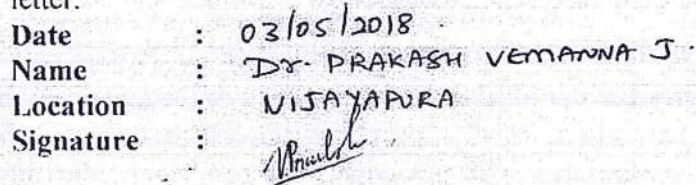 letter.
Date : 03/05/2018
Name : Dr. PRAKASH VEMANNA J.
Location : VIJAYAPURA
Signature :